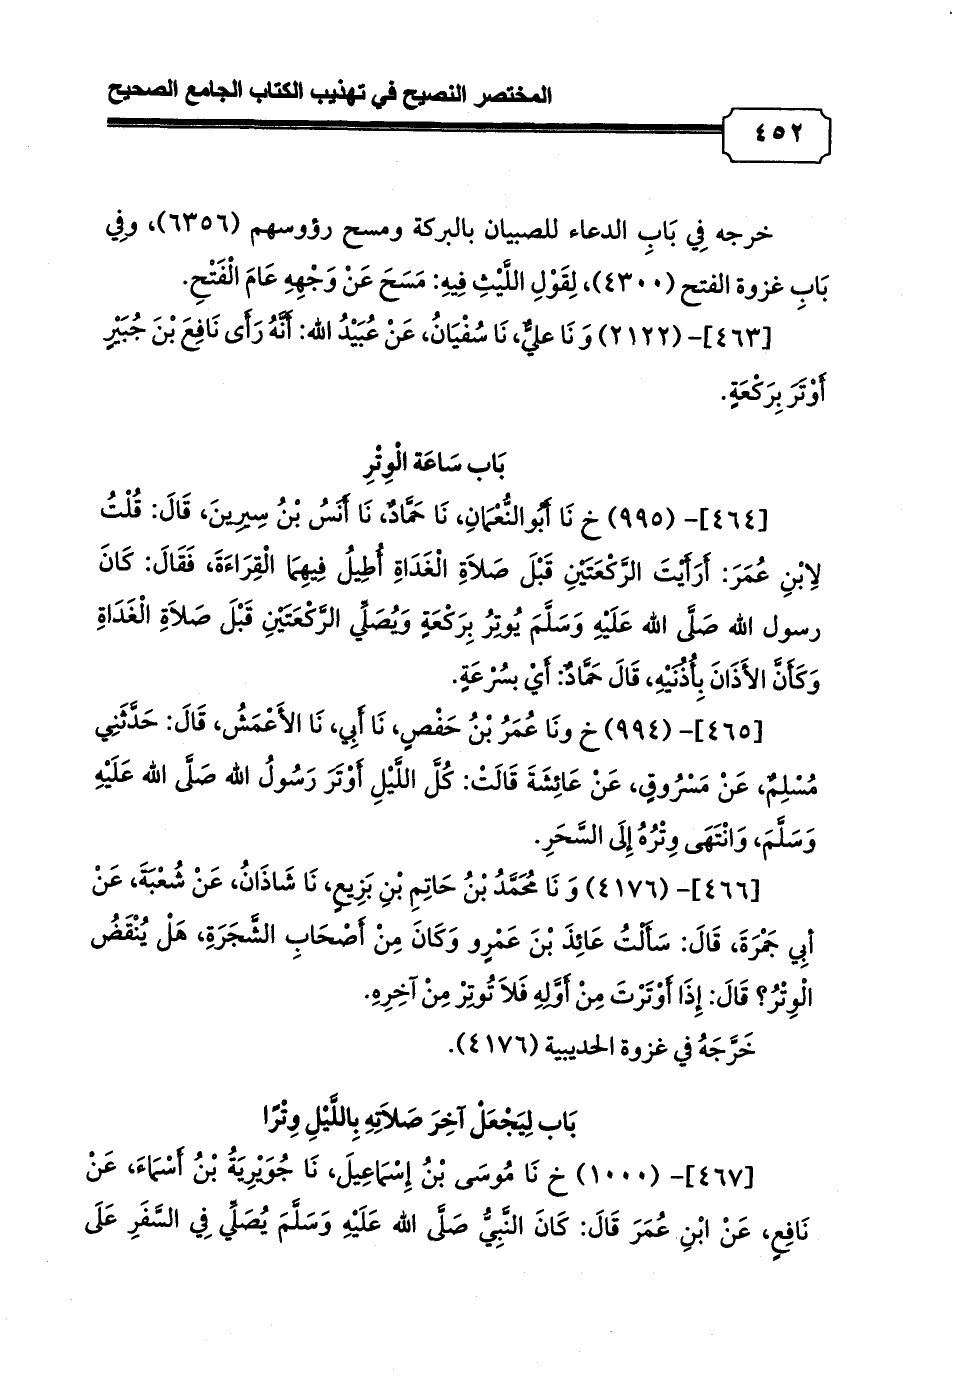 المختصر النصيح في تهذيب الكتاب الجامع الصحيح
٤٥٢
خرجه فِي بَابِ الدعاء للصبيان بالبركة ومسح رؤوسهم (٦٣٥٦)، وفِي
بَابِ غزوة الفتح (٤٣٠٠)، لِقَوْلِ اللَّيْثِ فِيهِ: مَسَحَ عَنْ وَجْهِهِ عَامَ الْفَتْحِ.
[٤٦٣]- (٢١٢٢) وَ نَا عليٌّ، نَا سُفْيَانُ، عَنْ عُبَيْدُ الله: أنَّهُ رَأى نَافِعَ بْنَ جُبَيْرٍ
أوْتَرَ بِرَكْعَةٍ.
بَاب سَاعَة الْوِتْرِ
[٤٦٤]- (٩٩٥) خ نَا أبُوالنُّعْمَانِ، نَا حَمَّادٌ، نَا أنَسُ بْنُ سِيرِينَ، قَالَ: قُلْتُ
لِابْنِ عُمَرَ: أرَأيْتَ الرَّكْعَتَيْنِ قَبْلَ صَلاَةِ الْغَدَاةِ أُطِيلُ فِيهِمَا الْقِرَاءَةَ، فَقَالَ: كَانَ
رسول الله صَلَّى الله عَلَيْهِ وَسَلَّمَ يُوتِرُ بِرَكْعَةٍ وَيُصَلِّي الرَّكْعَتَيْنِ قَبْلَ صَلاَةِ الْغَدَاةِ
وَكَأنَّ الأذَانَ بِأُذُنَيْهِ، قَالَ حَمَّادٌ: أيْ بِسُرْعَةٍ.
[٤٦٥]- (٩٩٤) خ ونَا عُمَرُ بْنُ حَفْصٍ، نَا أبِي، نَا الأعْمَشُ، قَالَ: حَدَّثَنِي
مُسْلِمٌ، عَنْ مَسْرُوقٍ، عَنْ عَائِشَةَ قَالَتْ: كُلَّ اللَّيْلِ أوْتَرَ رَسُولُ الله صَلَّى الله عَلَيْهِ
وَسَلَّمَ، وَانْتَهَى وِتْرُهُ إِلَى السَّحَرِ.
[٤٦٦]- (٤١٧٦) وَ نَا مُحَمَّدُ بْنُ حَاتِمِ بْنِ بَزِيعٍ، نَا شَاذَانُ، عَنْ شُعْبَةَ، عَنْ
أبِي جَمْرَةَ، قَالَ: سَألْتُ عَائِذَ بْنَ عَمْرٍو وَكَانَ مِنْ أصْحَابِ الشَّجَرَةِ، هَلْ يُنْقَضُ
الْوِتْرُ؟ قَالَ: إِذَا أوْتَرْتَ مِنْ أوَّلِهِ فَلاَ تُوتِرْ مِنْ آخِرِهِ.
خَرَّجَهُ فِي غزوة الحديبية (٤١٧٦).
بَاب لِيَجْعَلْ آخِرَ صَلاَتِهِ بِاللَّيْلِ وِتْرًا
[٤٦٧]- (١٠٠٠) خ نَا مُوسَى بْنُ إِسْمَاعِيلَ، نَا جُوَيْرِيَةُ بْنُ أسْمَاءَ، عَنْ
نَافِعٍ، عَنْ ابْنِ عُمَرَ قَالَ: كَانَ النَّبِيُّ صَلَّى الله عَلَيْهِ وَسَلَّمَ يُصَلِّي فِي السَّفَرِ عَلَى